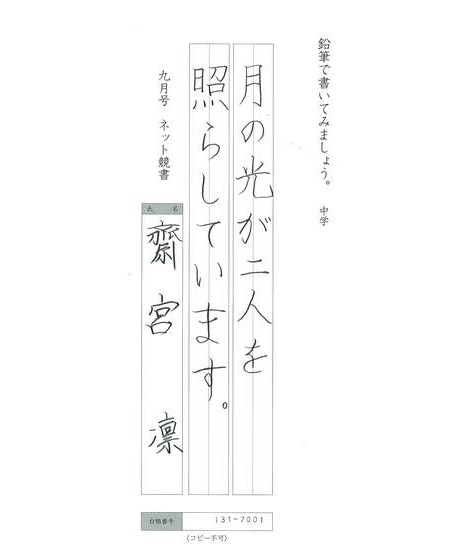 鉛筆で書いてみましょう。 中学
月の光が二人を
照らしています。
九月号 ネット競書
氏名
齋宮 凛
台帳番号 131-7001
(コピー不可)